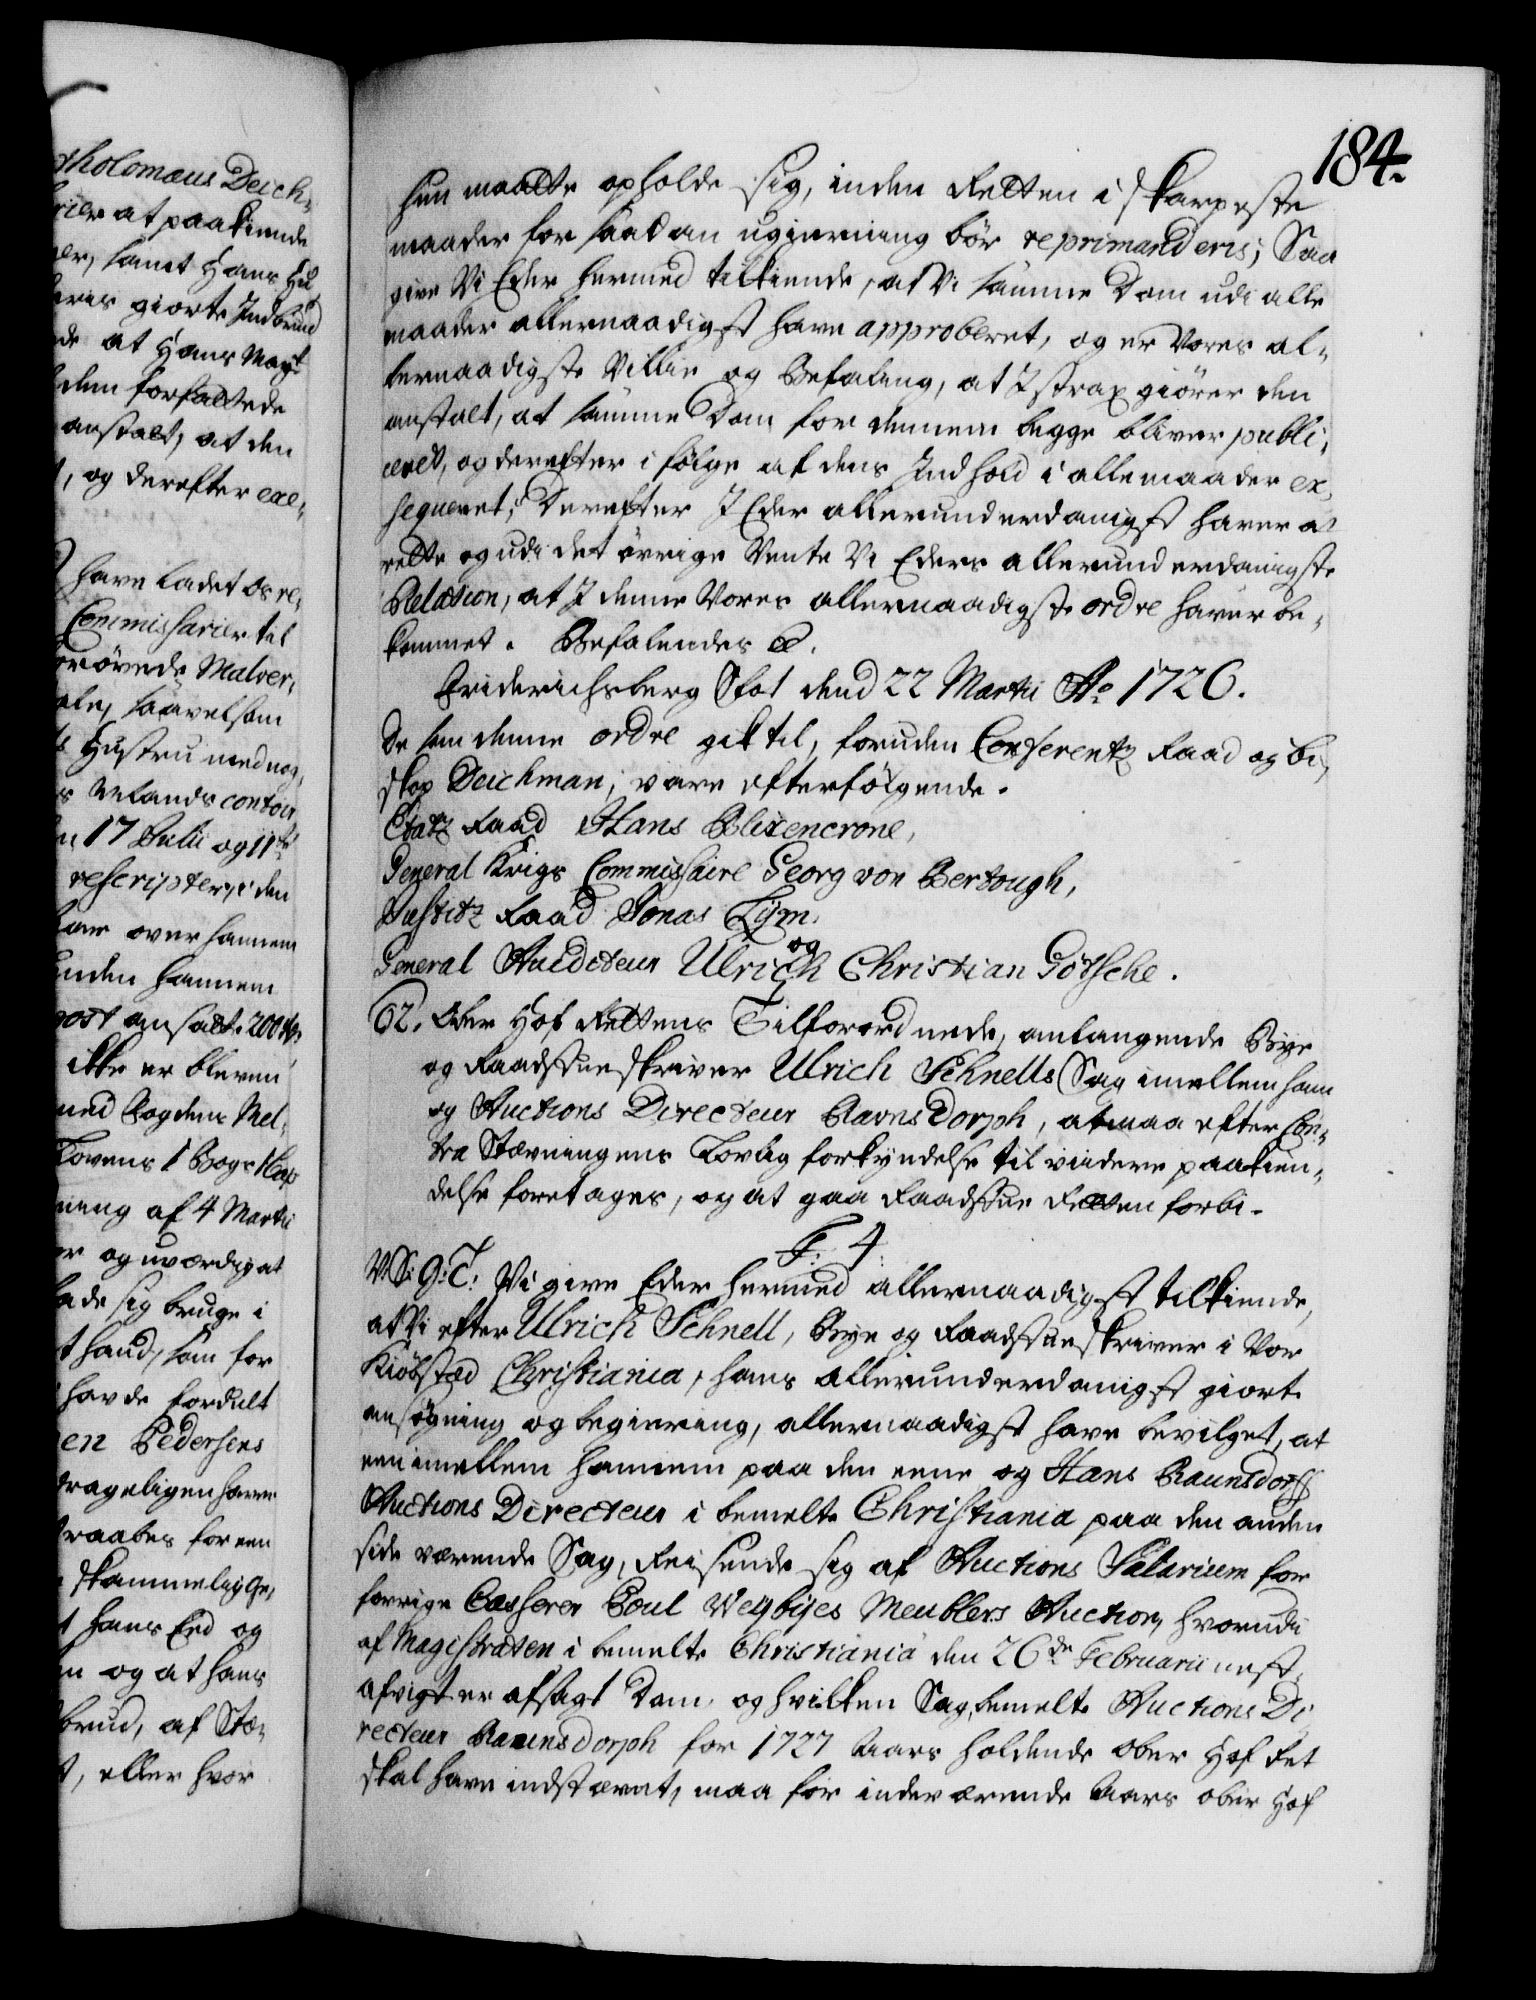 184.
hun maatte opholde sig, inden Retten i skarpeste
maader for saadan ugierning bør reprimanderis; Saa
give Vi Eder hermed tilkiende, at Vi samme Dom udi alle
maader allernaadigst have approberet, og er Vores al-
lernaadigste Villie og Befaling, at I strax giører den
anstalt, at samme Dom for dennem begge bliver publi-
ceret, og derefter i følge af dens Indhold i alle maader ex-
seqveret; Derefter I Eder allerunderdanigst haver at
rette og udi det øvrige Vente Vi Eders allerunderdanigste
Relation, at I denne Vores allernaadigste ordre haver be-
kommet. Befalendes &.
Friderichsberg Slot dend 22 Martii Ao 1726.
De som denne ordre gik til, foruden Conferentz Raad og Bi-
skop Deichman, vare efterfølgende.
Etatz Raad Hans Blixencrone,
General Krigs Commissaire Georg von Bertough,
Justitz Raad Jonas Lÿm.
og
General Auditeur Ulrich Christian Götsche.
62. Ober Hof Rettens Tilforordnede, anlangende Bye
og Raadstueskriver Ulrich Schnells Sag imellem ham
og Auctions Directeur Ravnsdorph, at maa efter Con-
tra Stævningens Lovlig forkyndelse til videre paakien-
delse foretages, og at gaa Raadstue Retten forbi.
F: 4
V. S: G: T: Vi give Eder hermed allernaadigst tilkiende,
at Vi efter Ulrich Schnell, Bye og Raadstueskriver i Vor
Kiøbstæd Christiania, hans allerunderdanigst giorte
ansøgning og begiering, allernaadigst have bevilget, at
een imellem hannem paa den eene og Hans Raunsdorff
Auctions Directeur i bemelte Christiania paa den anden
side værende Sag, Reisende sig af Auctions Salarium for
forrige Casserer Poul Weybÿes Meublers Auction, hvorudi
af Magistraten i bemelte Christiania den 26de Februarii nest-
afvigt er afsagt Dom, og hvilken Sag, bemelte Auctions Di-
recteur Raunsdorph for 1727 Aars holdende Ober Hof Ret
skal have indstævnt, maa for indeværende Aars ober Hof